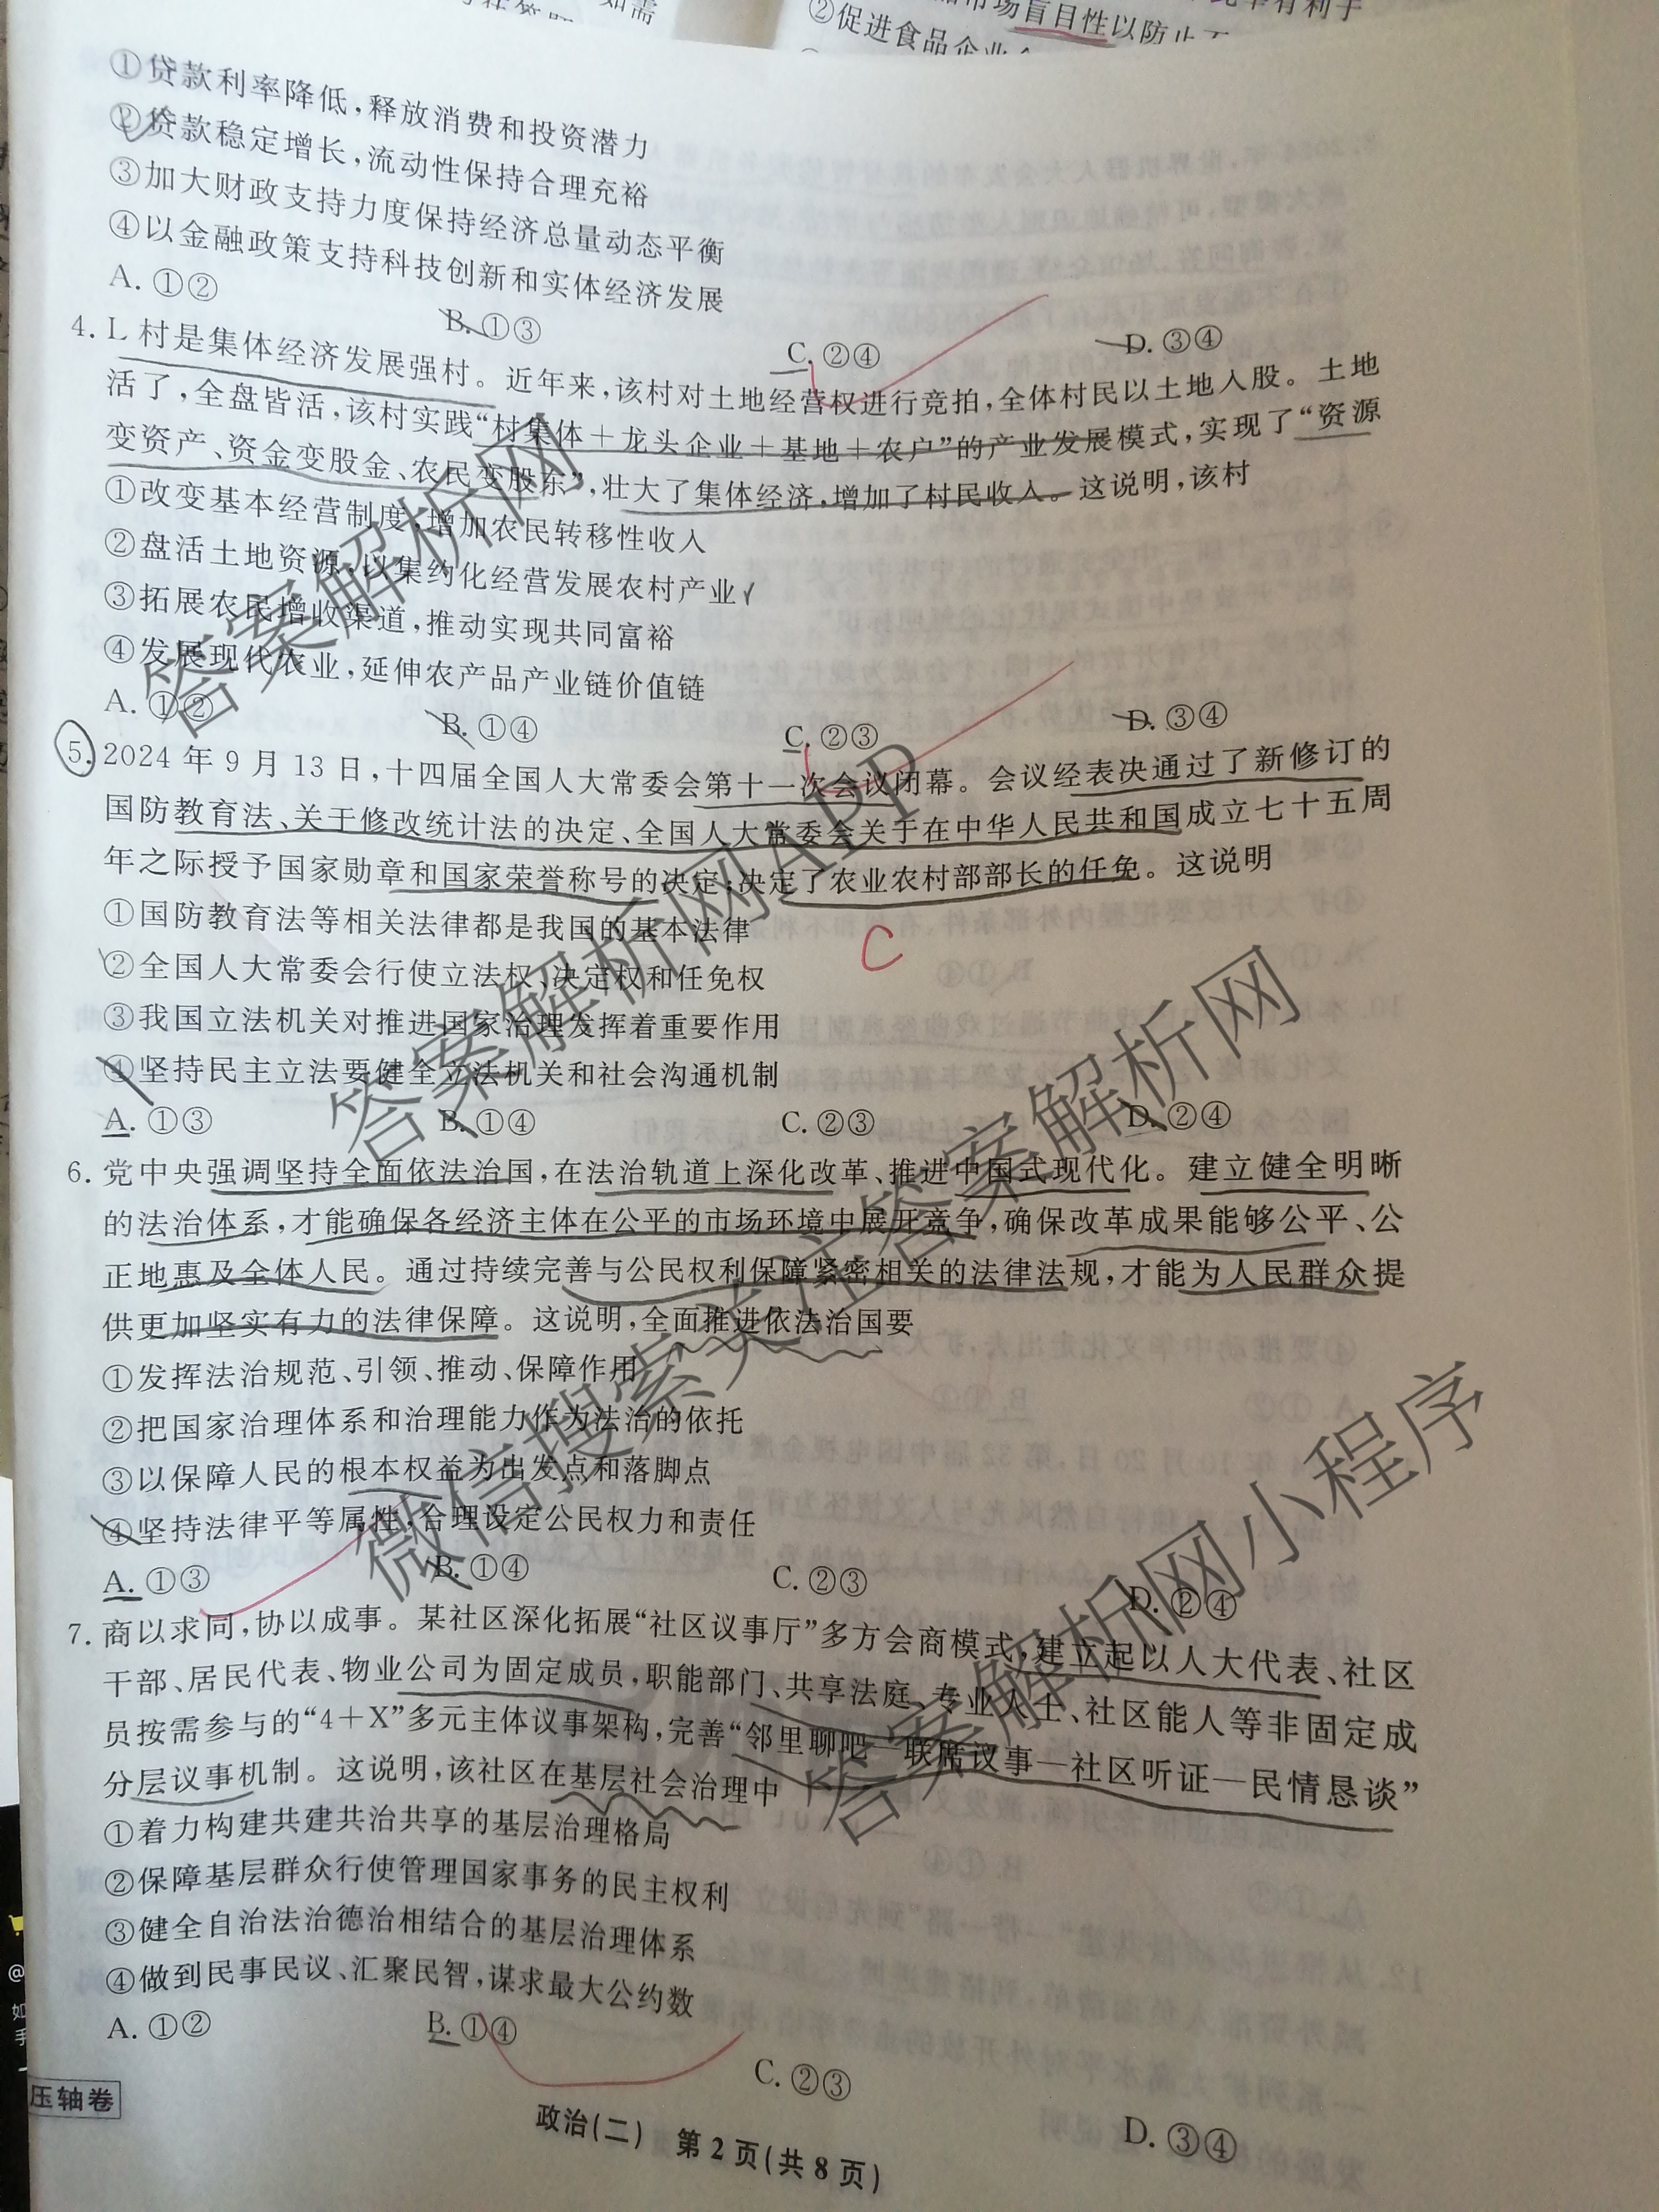 如需
②促进食品企业
市场盲目性以防止
有利于
①贷款利率降低,释放消费和投资潜力
②贷款稳定增长,流动性保持合理充裕
③加大财政支持力度保持经济总量动态平衡
④以金融政策支持科技创新和实体经济发展
A. ①② B. ①③ C. ②④ D. ③④
4. L 村是集体经济发展强村。近年来,该村对土地经营权进行竞拍,全体村民以土地入股。土地
活了,全盘皆活,该村实践“村集体+龙头企业+基地+农户”的产业发展模式,实现了“资源
变资产、资金变股金、农民变股东”,壮大了集体经济,增加了村民收入。这说明,该村
①改变基本经营制度,增加农民转移性收入
②盘活土地资源,以集约化经营发展农村产业✓
③拓展农民增收渠道,推动实现共同富裕
④发展现代农业,延伸农产品产业链价值链
A. ①② B. ①④ C. ②③ D. ③④
5. 2024 年 9 月 13 日,十四届全国人大常委会第十一次会议闭幕。会议经表决通过了新修订的
国防教育法、关于修改统计法的决定、全国人大常委会关于在中华人民共和国成立七十五周
年之际授予国家勋章和国家荣誉称号的决定;决定了农业农村部部长的任免。这说明
①国防教育法等相关法律都是我国的基本法律
C
②全国人大常委会行使立法权、决定权和任免权
③我国立法机关对推进国家治理发挥着重要作用
④坚持民主立法要健全立法机关和社会沟通机制
A. ①③ B. ①④ C. ②③ D. ②④
6. 党中央强调坚持全面依法治国,在法治轨道上深化改革、推进中国式现代化。建立健全明晰
的法治体系,才能确保各经济主体在公平的市场环境中展开竞争,确保改革成果能够公平、公
正地惠及全体人民。通过持续完善与公民权利保障紧密相关的法律法规,才能为人民群众提
供更加坚实有力的法律保障。这说明,全面推进依法治国要
①发挥法治规范、引领、推动、保障作用
②把国家治理体系和治理能力作为法治的依托
③以保障人民的根本权益为出发点和落脚点
④坚持法律平等属性,合理设定公民权力和责任
A. ①③ B. ①④ C. ②③ D. ②④
7. 商以求同,协以成事。某社区深化拓展“社区议事厅”多方会商模式,建立起以人大代表、社区
干部、居民代表、物业公司为固定成员,职能部门、共享法庭、专业人士、社区能人等非固定成
员按需参与的“4+X”多元主体议事架构,完善“邻里聊吧—联席议事—社区听证—民情恳谈”
分层议事机制。这说明,该社区在基层社会治理中
①着力构建共建共治共享的基层治理格局
②保障基层群众行使管理国家事务的民主权利
③健全自治法治德治相结合的基层治理体系
④做到民事民议、汇聚民智,谋求最大公约数
A. ①② B. ①④ C. ②③ D. ③④
压轴卷
政治(二) 第 2 页(共 8 页)
答案解析网
答案解析网APP
微信搜索关注答案解析网
答案解析网小程序